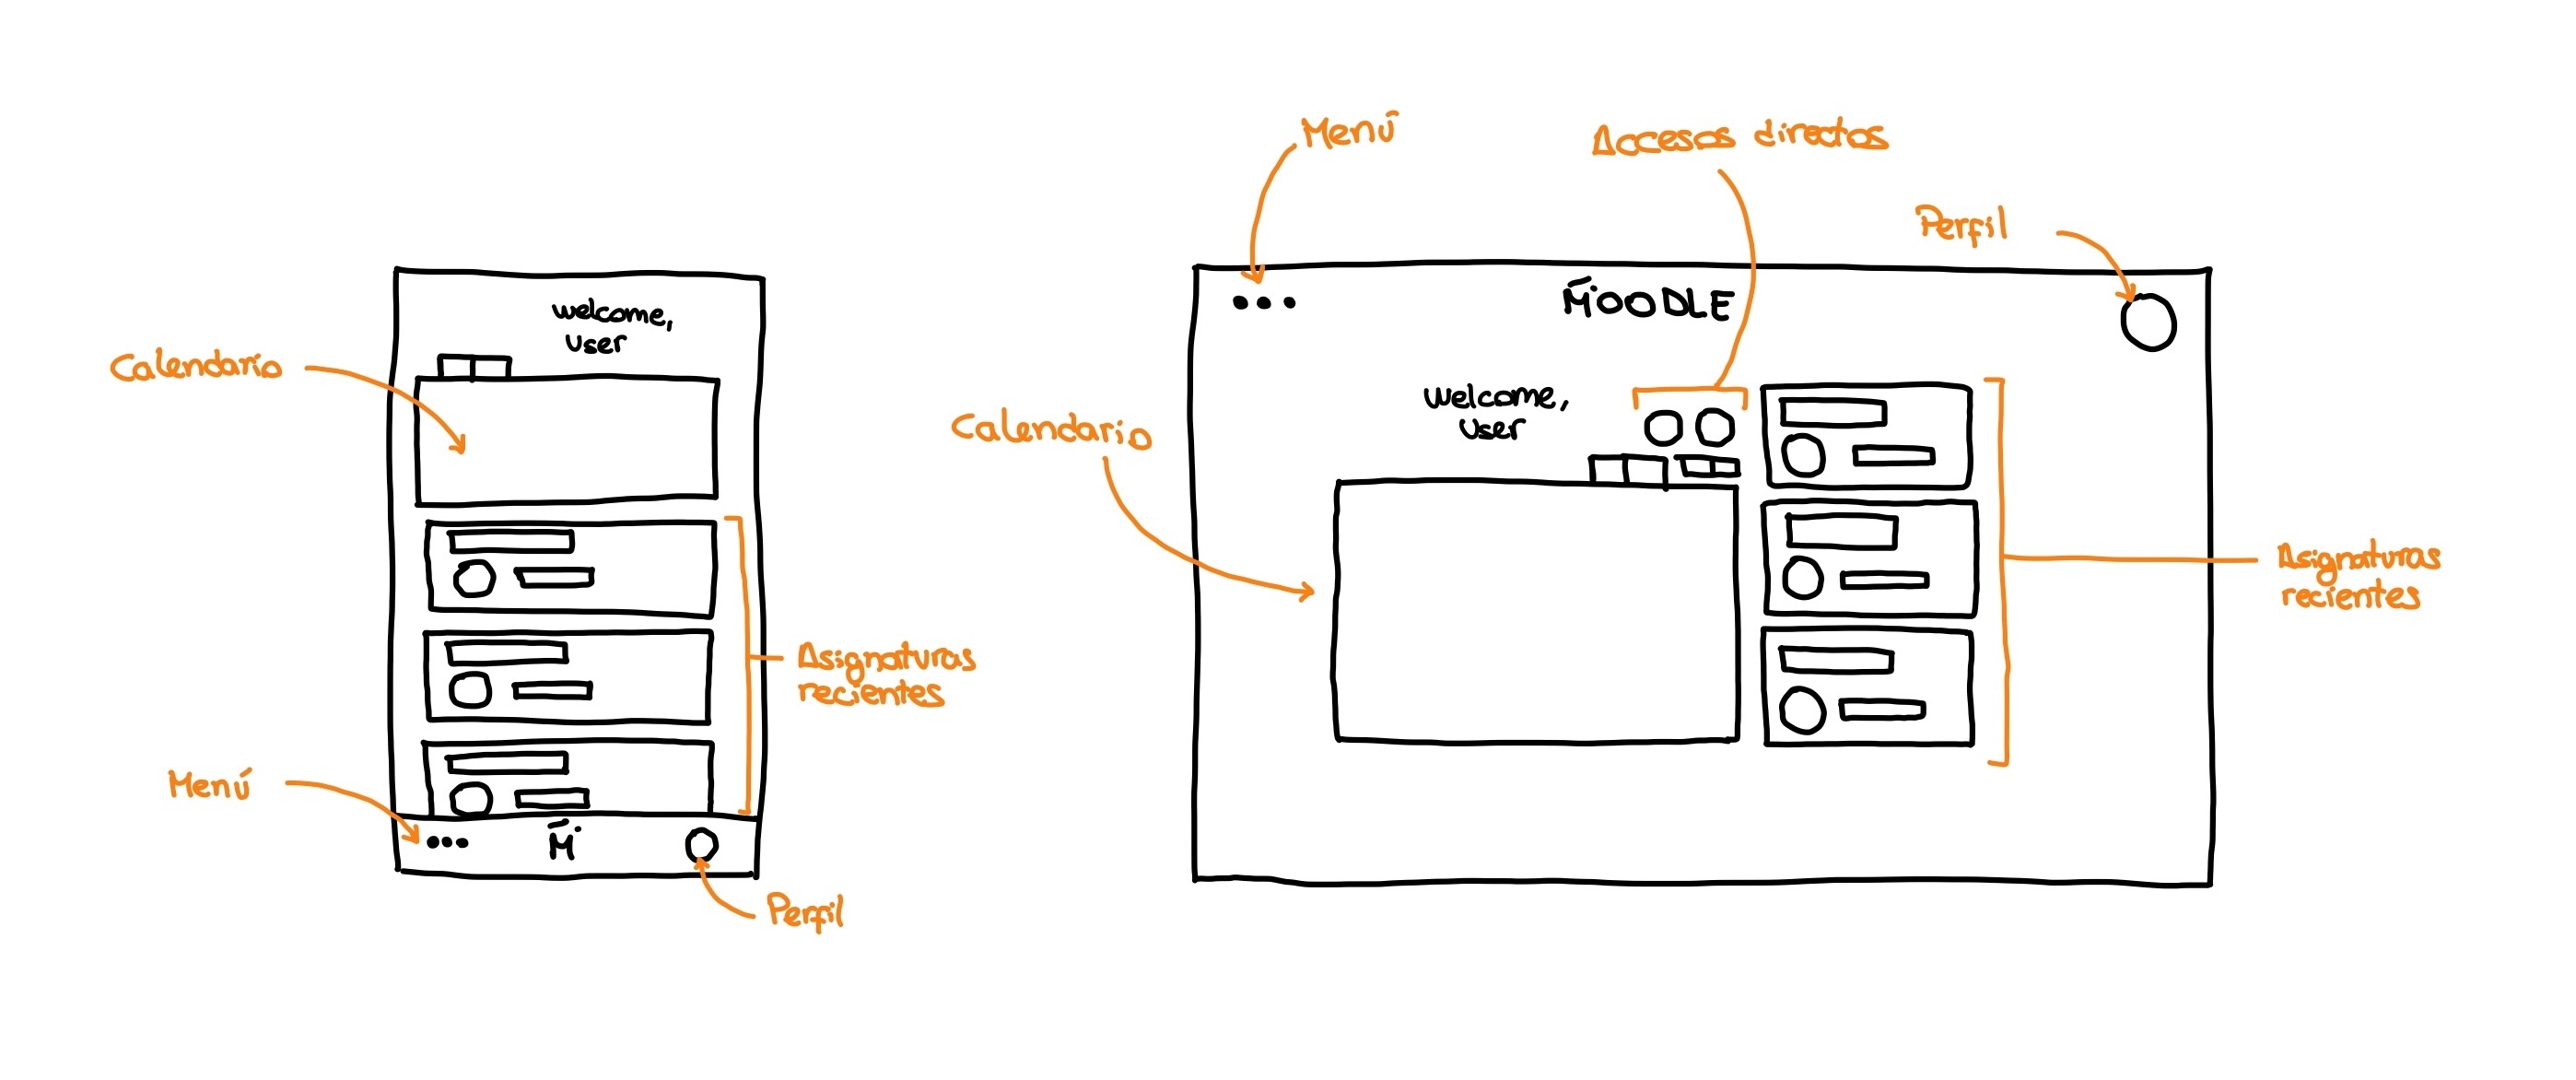 welcome,
user
Calendario
Asignaturas
recientes
Menú
M
Perfil
Menú
Accesos directos
Perfil
MOODLE
welcome,
user
Calendario
Asignaturas
recientes